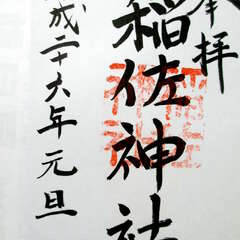 奉拝
稲佐神社
成二十六年元旦